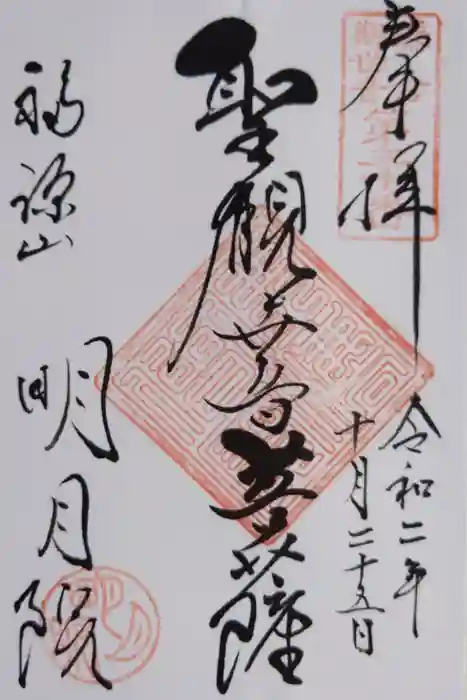 奉拝
令和二年
十月二十五日
聖観世音菩薩
福源山
明月院